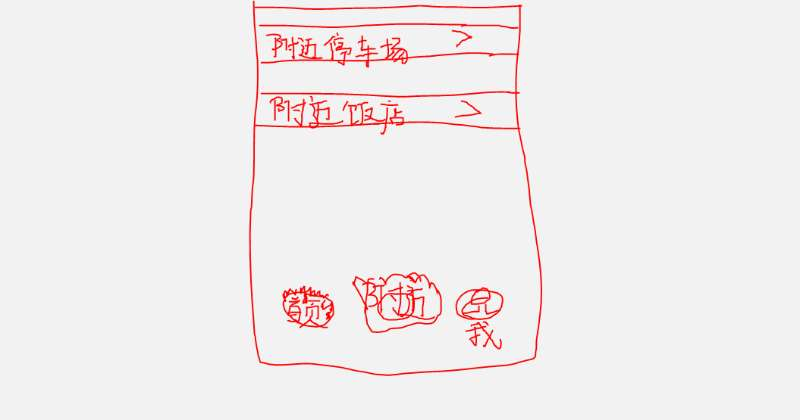 附近停车场 >
附近饭店 >
首页 附近 我